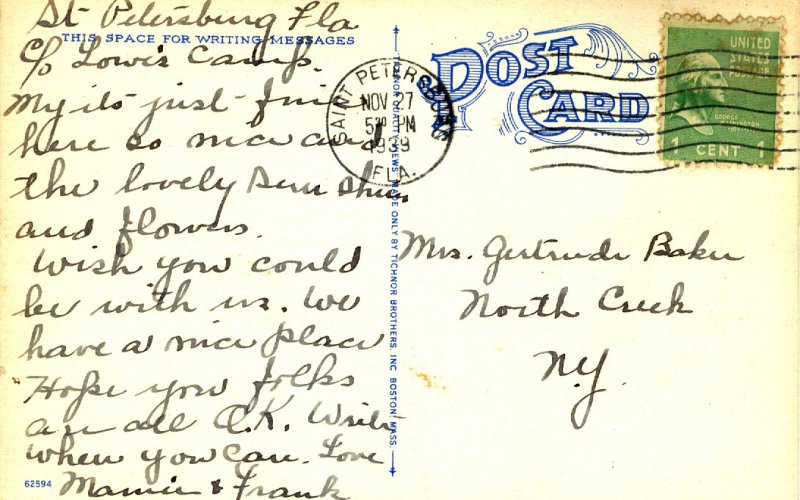 St Petersburg Fla
THIS SPACE FOR WRITING MESSAGES
c/o Lowis Camp.
My its just fine
here so nice and
the lovely Sun Shine
and flowers.
Wish you could
be with us. We
have a nice place
Hope you folks
are all O.K. Write
when you can. Love
Mamie & Frank
62594
TICHNOR QUALITY VIEWS. MADE ONLY BY TICHNOR BROTHERS, INC. BOSTON, MASS.
POST CARD
SAINT PETERSBURG
NOV 27
5:30 PM
1939
FLA.
UNITED
STATES
POSTAGE
GEORGE
WASHINGTON
1 CENT 1
Mrs. Gertrude Baker
North Creek
N.Y.